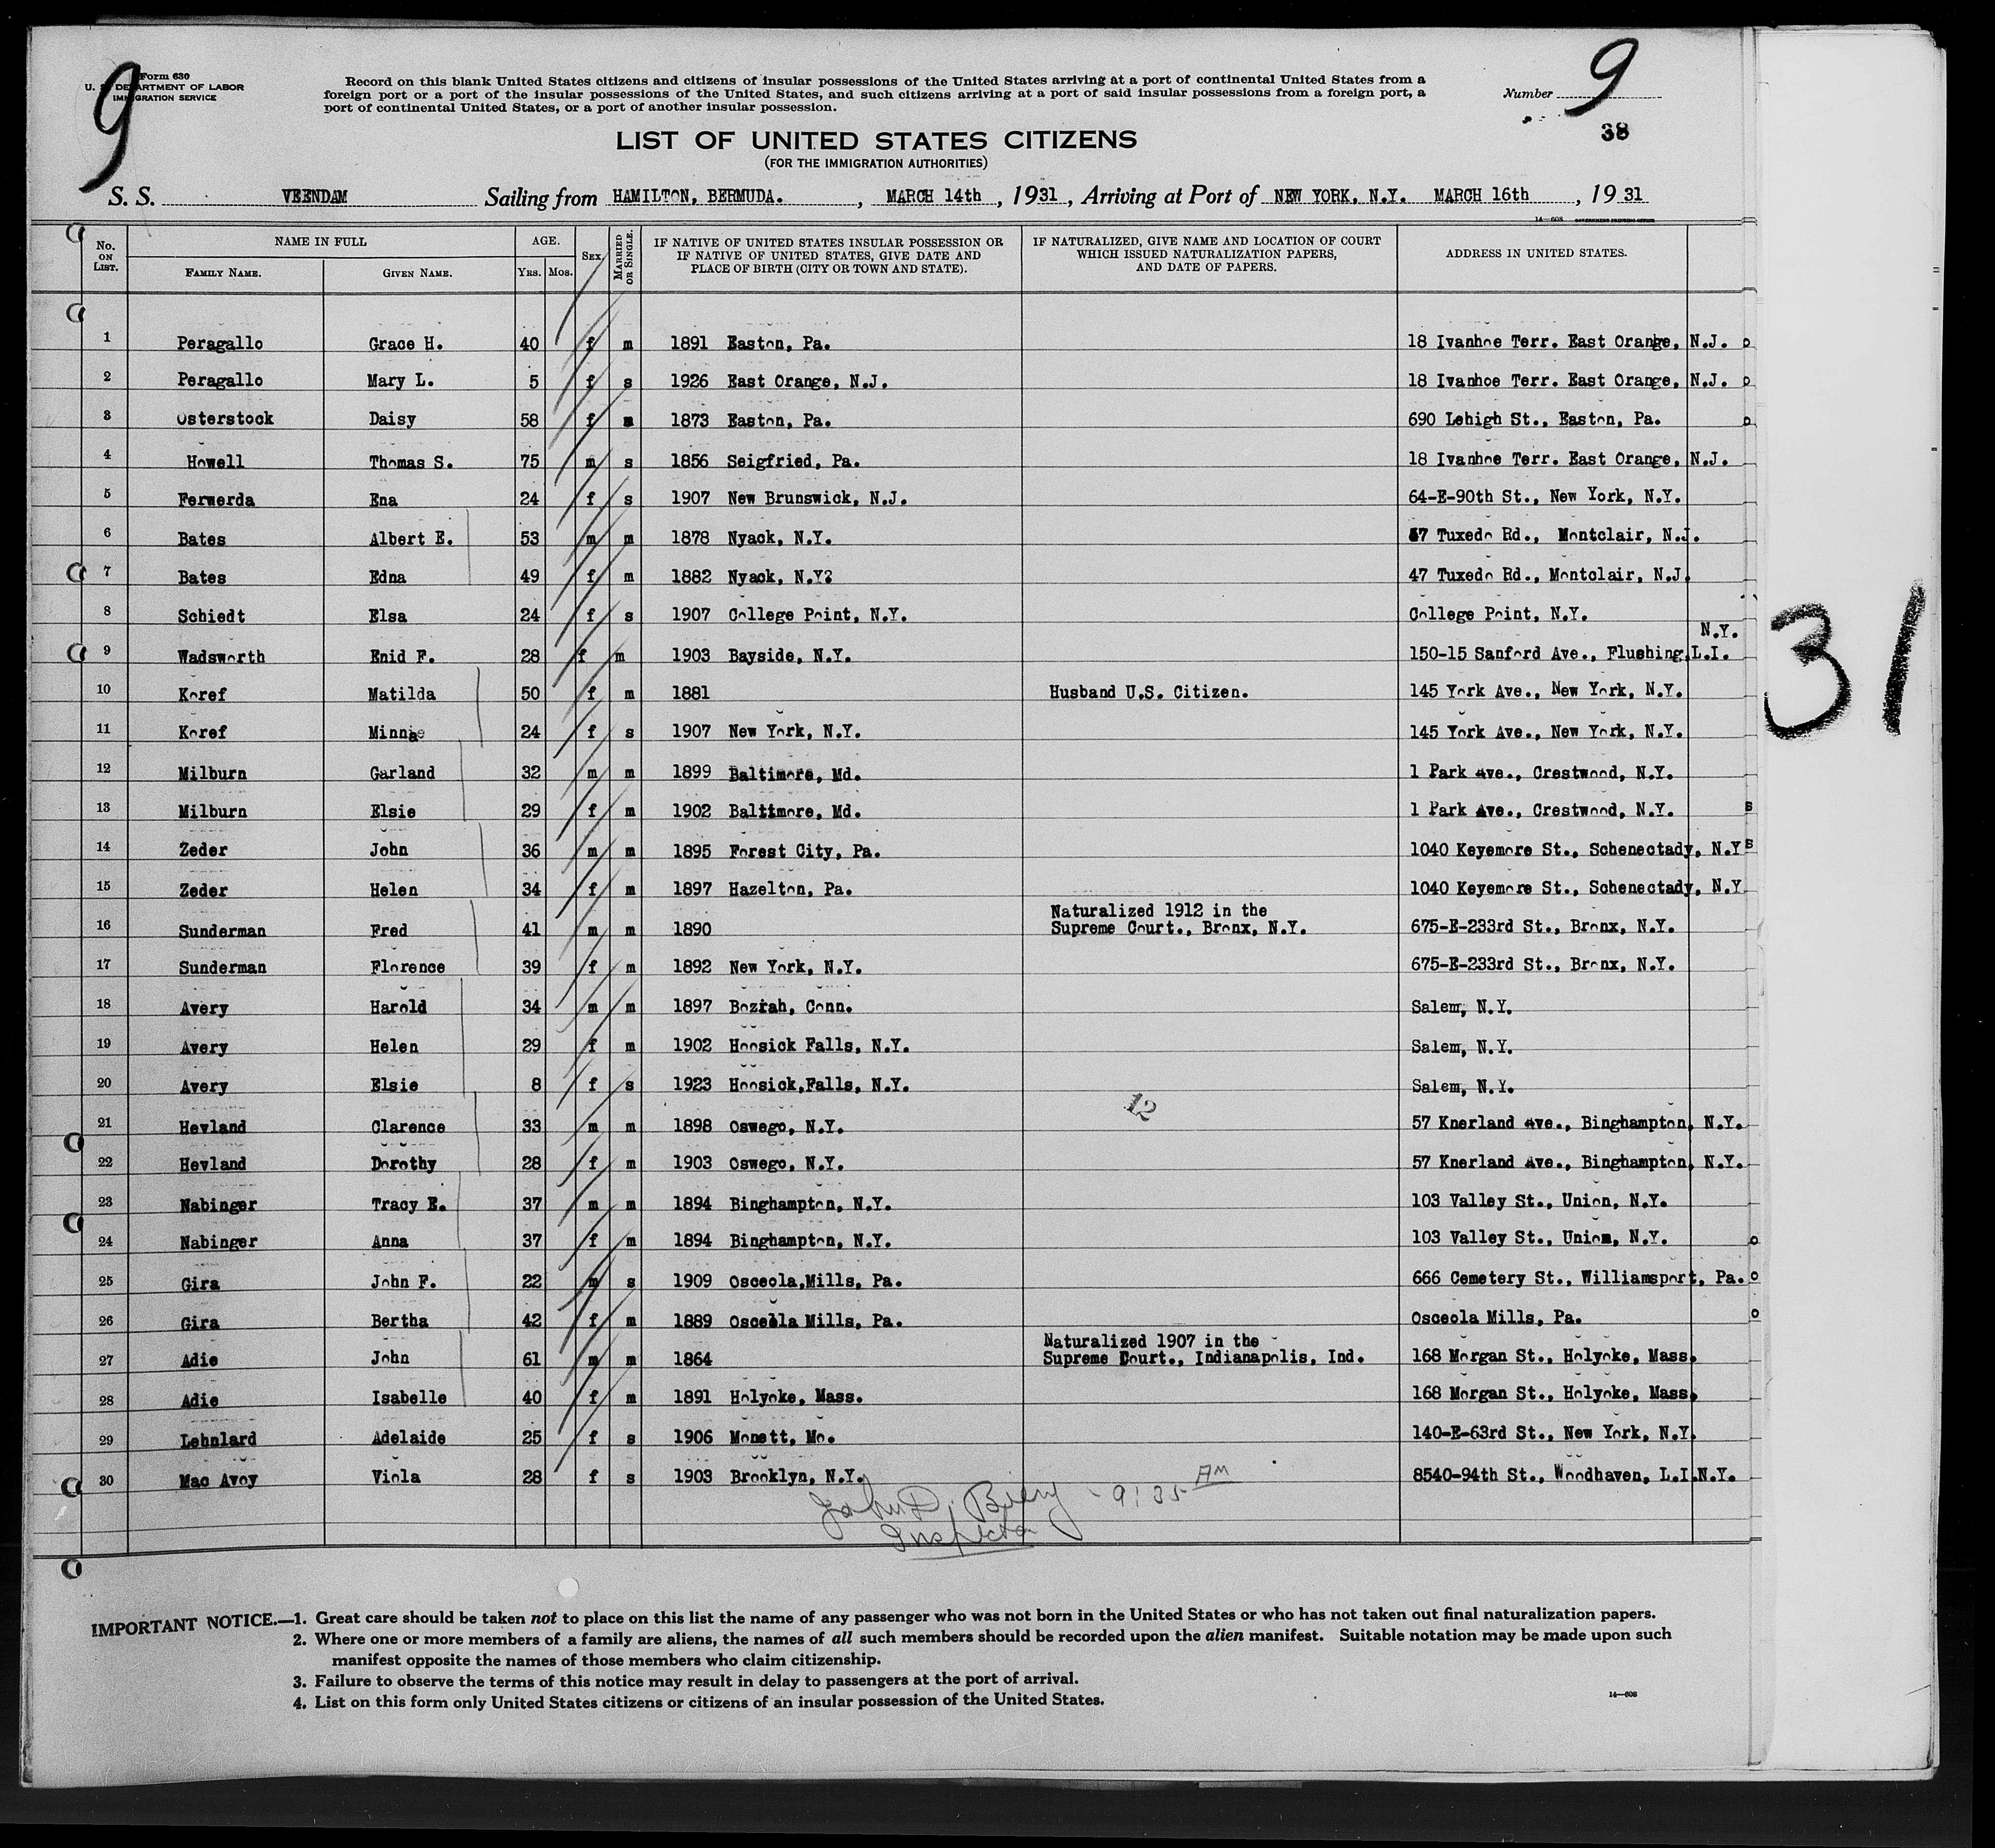 9
Form 630
U. S. DEPARTMENT OF LABOR
IMMIGRATION SERVICE
Record on this blank United States citizens and citizens of insular possessions of the United States arriving at a port of continental United States from a
foreign port or a port of the insular possessions of the United States, and such citizens arriving at a port of said insular possessions from a foreign port, a
port of continental United States, or a port of another insular possession.
Number 9
38
LIST OF UNITED STATES CITIZENS
(FOR THE IMMIGRATION AUTHORITIES)
S. S. VEENDAM Sailing from HAMILTON, BERMUDA. , MARCH 14th , 1931 , Arriving at Port of NEW YORK, N.Y. MARCH 16th , 1931
14—608 GOVERNMENT PRINTING OFFICE
No. ON LIST. NAME IN FULL FAMILY NAME. GIVEN NAME. AGE. YRS. MOS. SEX. MARRIED OR SINGLE. IF NATIVE OF UNITED STATES INSULAR POSSESSION OR IF NATIVE OF UNITED STATES, GIVE DATE AND PLACE OF BIRTH (CITY OR TOWN AND STATE). IF NATURALIZED, GIVE NAME AND LOCATION OF COURT WHICH ISSUED NATURALIZATION PAPERS, AND DATE OF PAPERS. ADDRESS IN UNITED STATES.
1 Peragallo Grace H. 40 f m 1891 Easton, Pa. 18 Ivanhoe Terr. East Orange, N.J. o
2 Peragallo Mary L. 5 f s 1926 East Orange, N.J. 18 Ivanhoe Terr. East Orange, N.J. o
3 Osterstock Daisy 58 f m 1873 Easton, Pa. 690 Lehigh St., Easton, Pa. o
4 Howell Thomas S. 75 m s 1856 Seigfried, Pa. 18 Ivanhoe Terr. East Orange, N.J.
5 Ferwerda Ena 24 f s 1907 New Brunswick, N.J. 64-E-90th St., New York, N.Y.
6 Bates Albert E. 53 m m 1878 Nyack, N.Y. 47 Tuxedo Rd., Montclair, N.J.
7 Bates Edna 49 f m 1882 Nyack, N.Y? 47 Tuxedo Rd., Montclair, N.J.
8 Schiedt Elsa 24 f s 1907 College Point, N.Y. College Point, N.Y.
9 Wadsworth Enid F. 28 f m 1903 Bayside, N.Y. 150-15 Sanford Ave., Flushing,L.I. N.Y.
10 Koref Matilda 50 f m 1881 Husband U.S. Citizen. 145 York Ave., New York, N.Y.
11 Koref Minnie 24 f s 1907 New York, N.Y. 145 York Ave., New York, N.Y.
12 Milburn Garland 32 m m 1899 Baltimore, Md. 1 Park Ave., Crestwood, N.Y.
13 Milburn Elsie 29 f m 1902 Baltimore, Md. 1 Park Ave., Crestwood, N.Y. s
14 Zeder John 36 m m 1895 Forest City, Pa. 1040 Keyemore St., Schenectady, N.Y s
15 Zeder Helen 34 f m 1897 Hazelton, Pa. 1040 Keyemore St., Schenectady, N.Y
16 Sunderman Fred 41 m m 1890 Naturalized 1912 in the Supreme Court., Bronx, N.Y. 675-E-233rd St., Bronx, N.Y.
17 Sunderman Florence 39 f m 1892 New York, N.Y. 675-E-233rd St., Bronx, N.Y.
18 Avery Harold 34 m m 1897 Bozrah, Conn. Salem, N.Y.
19 Avery Helen 29 f m 1902 Hoosick Falls, N.Y. Salem, N.Y.
20 Avery Elsie 8 f s 1923 Hoosick,Falls, N.Y. Salem, N.Y.
12
21 Hevland Clarence 33 m m 1898 Oswego, N.Y. 57 Knerland Ave., Binghampton, N.Y.
22 Hevland Dorothy 28 f m 1903 Oswego, N.Y. 57 Knerland Ave., Binghampton, N.Y.
23 Nabinger Tracy E. 37 m m 1894 Binghampton, N.Y. 103 Valley St., Union, N.Y.
24 Nabinger Anna 37 f m 1894 Binghampton, N.Y. 103 Valley St., Union, N.Y. o
25 Gira John F. 22 m s 1909 Osceola,Mills, Pa. 666 Cemetery St., Williamsport, Pa. o
26 Gira Bertha 42 f m 1889 Osceola Mills, Pa. Osceola Mills, Pa. o
27 Adie John 61 m m 1864 Naturalized 1907 in the Supreme Court., Indianapolis, Ind. 168 Morgan St., Holyoke, Mass.
28 Adie Isabelle 40 f m 1891 Holyoke, Mass. 168 Morgan St., Holyoke, Mass.
29 Lehnlard Adelaide 25 f s 1906 Monett, Mo. 140-E-63rd St., New York, N.Y.
30 Mac Avoy Viola 28 f s 1903 Brooklyn, N.Y. 8540-94th St., Woodhaven, L.I.N.Y.
John D. - 9:35 AM
Inspector
31
IMPORTANT NOTICE.—1. Great care should be taken not to place on this list the name of any passenger who was not born in the United States or who has not taken out final naturalization papers.
2. Where one or more members of a family are aliens, the names of all such members should be recorded upon the alien manifest. Suitable notation may be made upon such
manifest opposite the names of those members who claim citizenship.
3. Failure to observe the terms of this notice may result in delay to passengers at the port of arrival.
4. List on this form only United States citizens or citizens of an insular possession of the United States.
14—608